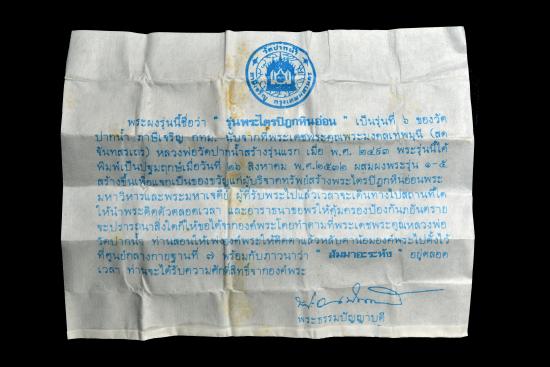 วัดปากน้ำ
ภาษีเจริญ กรุงเทพมหานคร
พระผงรุ่นนี้ชื่อว่า " รุ่นพระไตรปิฎกหินอ่อน " เป็นรุ่นที่ ๖ ของวัด
ปากน้ำ ภาษีเจริญ กทม. นับจากที่พระเดชพระคุณพระมงคลเทพมุนี (สด
จันทสรเถร) หลวงพ่อวัดปากน้ำสร้างรุ่นแรก เมื่อ พ.ศ. ๒๔๙๓ พระรุ่นนี้ได้
พิมพ์เป็นปฐมฤกษ์เมื่อวันที่ ๒๖ สิงหาคม พ.ศ.๒๕๓๒ ผสมผงพระรุ่น ๑-๕
สร้างขึ้นเพื่อแจกเป็นของขวัญแก่ผู้บริจาคทรัพย์สร้างพระไตรปิฎกหินอ่อนพระ
มหาวิหารและพระมหาเจดีย์ ผู้ที่รับพระไปแล้วเวลาจะเดินทางไปสถานที่ใด
ให้นำพระติดตัวตลอดเวลา และอาราธนาขอพรให้คุ้มครองป้องกันภยันตราย
จะปรารถนาสิ่งใดก็ให้ขอได้จากองค์พระโดยทำตามที่พระเดชพระคุณหลวงพ่อ
วัดปากน้ำ ท่านสอนให้เพ่งองค์พระให้ติดตาแล้วหลับตาน้อมองค์พระไปตั้งไว้
ที่ศูนย์กลางกายฐานที่ ๗ พร้อมกับภาวนาว่า " สัมมาอะระหัง " อยู่ตลอด
เวลา ท่านจะได้รับความศักดิ์สิทธิ์จากองค์พระ
พระธรรมปัญญาบดี